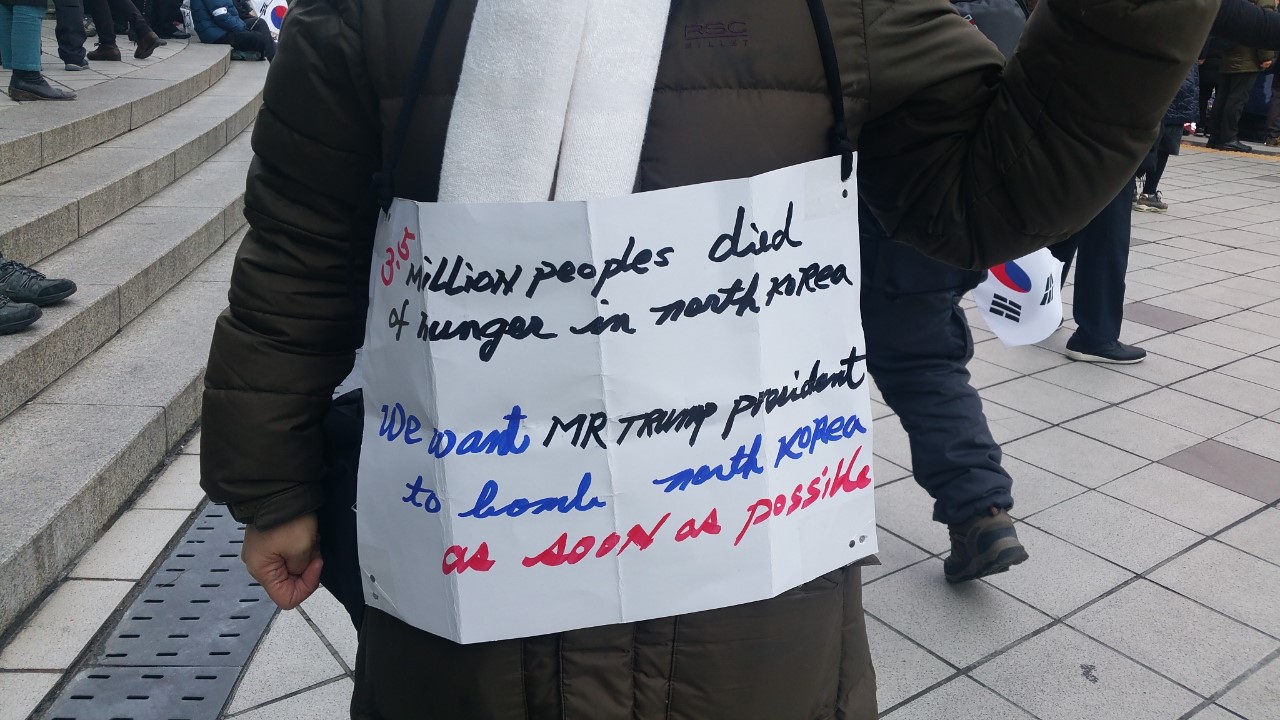 RSC
MILLET
3.5 Million peoples died
of hunger in north KOREA
We want MR TRUMP president
to bomb north KOREA
as sooN as possible